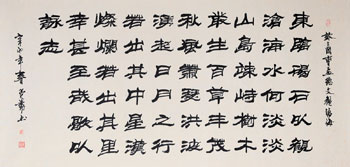 東臨碣石以觀
滄海水何淡淡
山島竦峙樹木
叢生百草豐茂
秋風蕭瑟洪波
湧起日月之行
若出其中星漢
燦爛若出其里
幸甚至哉歌以
詠志
辛卯年